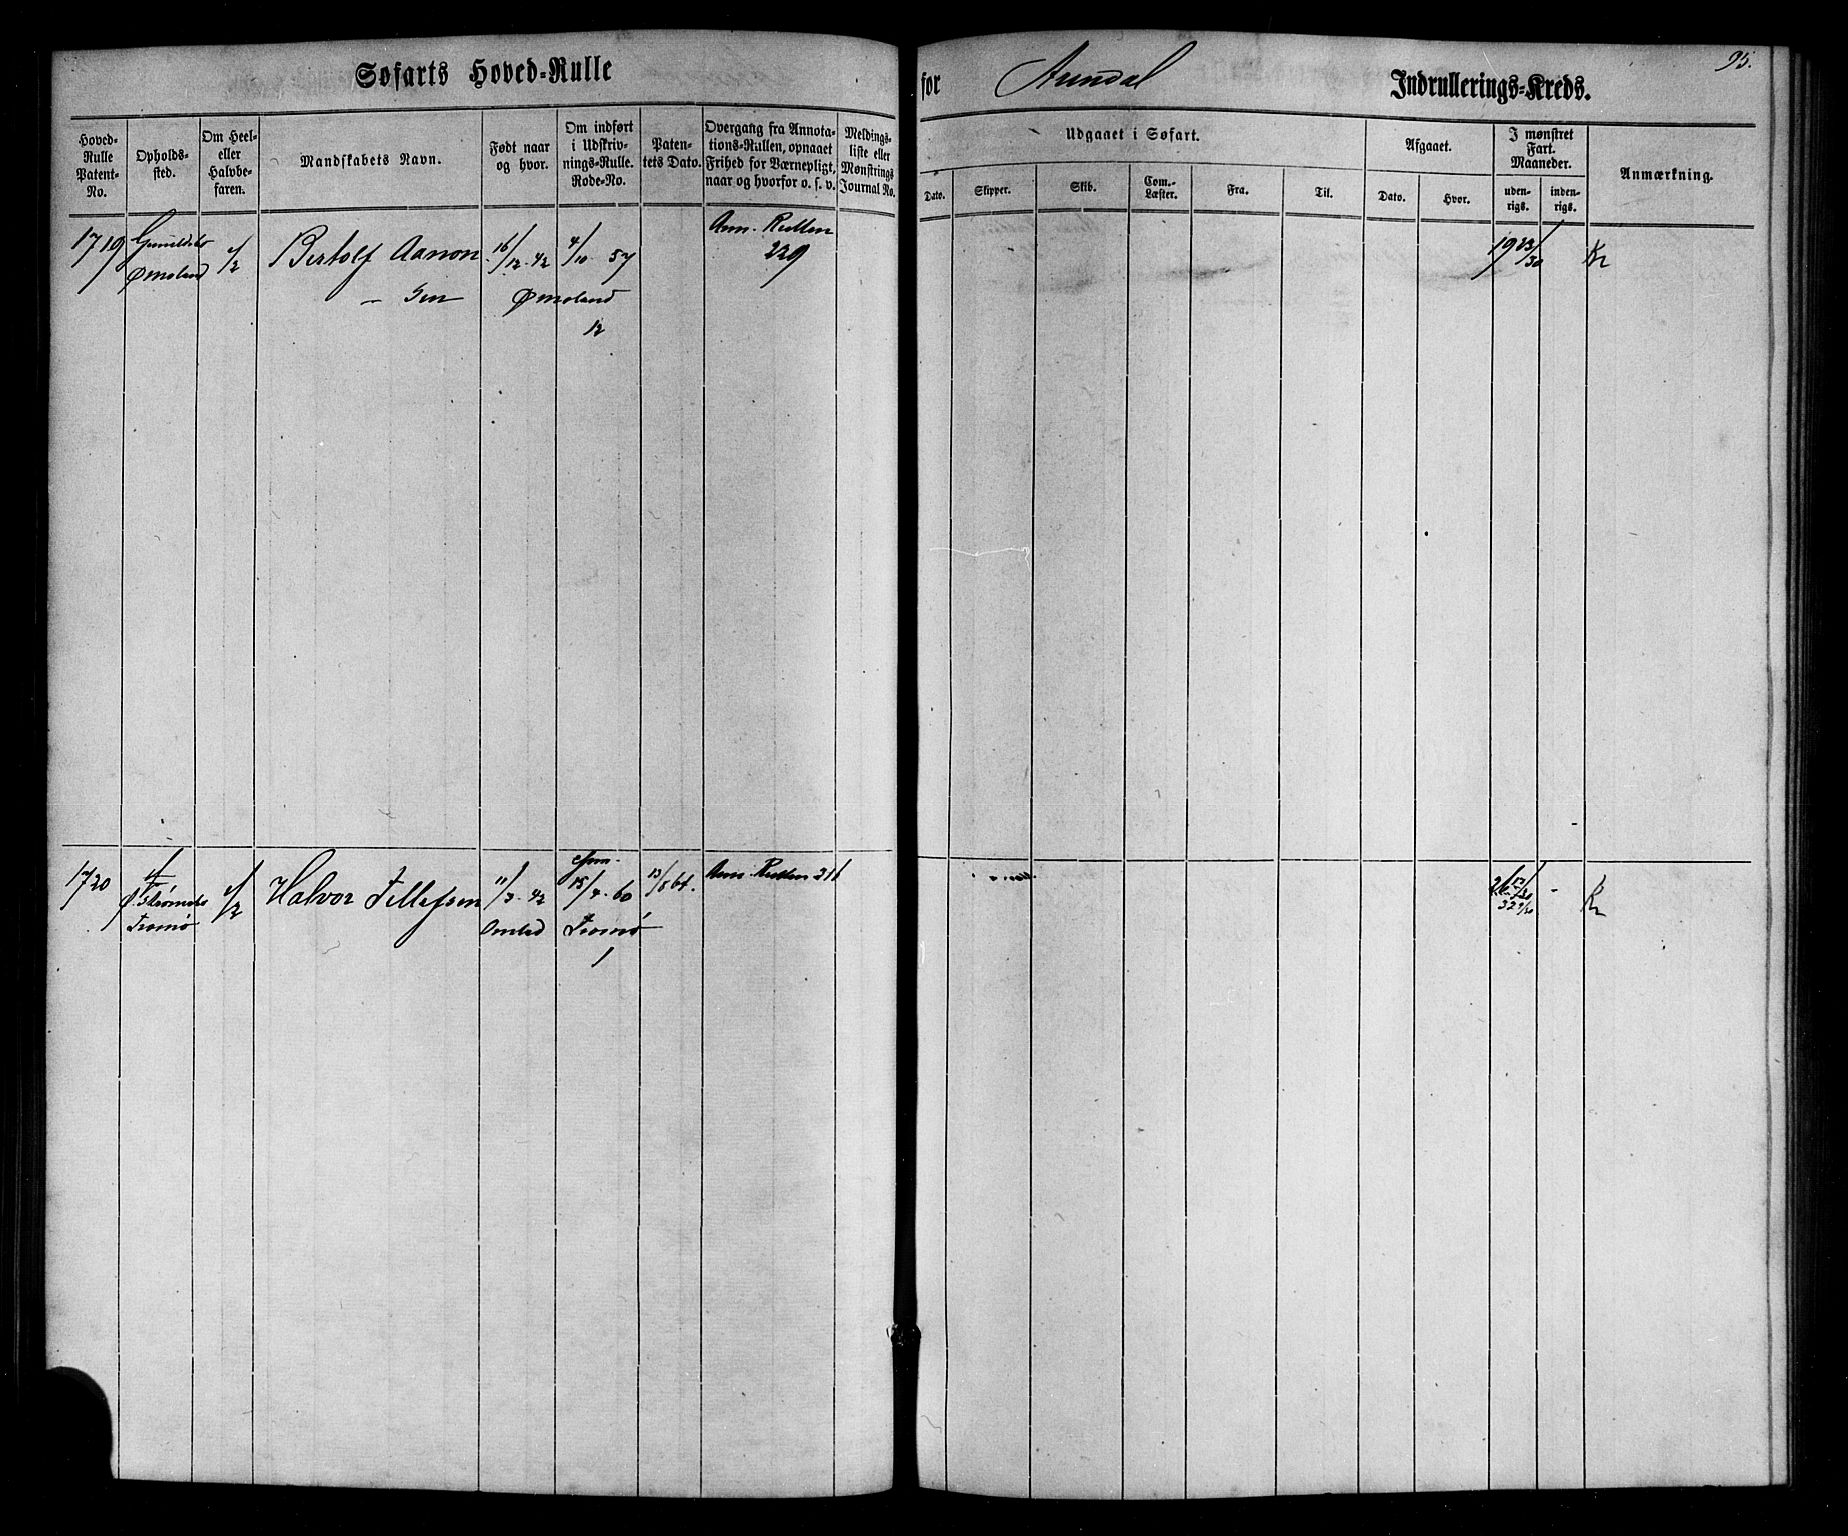 Søfarts Hoved-Rulle for Arendal Indrullerings-Kreds.
95.
Hoved-Rulle Patent-No.
Opholds-sted.
Om Heel- eller Halvbe-faren.
Mandskabets Navn.
Født naar og hvor.
Om indført i Udskriv-nings-Rulle. Rode-No.
Paten-tets Dato.
Overgang fra Annota-tions-Rullen, opnaaet Frihed for Værnepligt, naar og hvorfor o. s. v.
Meldings-liste eller Mønstrings Journal No.
Udgaaet i Søfart.
Dato.
Skipper.
Skib.
Com.-Læster.
Fra.
Til.
Afgaaet.
Dato.
Hvor.
I mønstret Fart. Maaneder.
uden-rigs.
inden-rigs.
Anmærkning.
1719
Ømoland
1/2
Bertolf Aanon
- Sen
16/12 42
Ømoland
4/10 57
12
Ann. Rullen
229
19 23/30
1720
Tromø
1/2
Halvor Tellefsen
11/3 42
15/4 60
Tromø
1
13/8 64.
Ann. Rullen 311
-